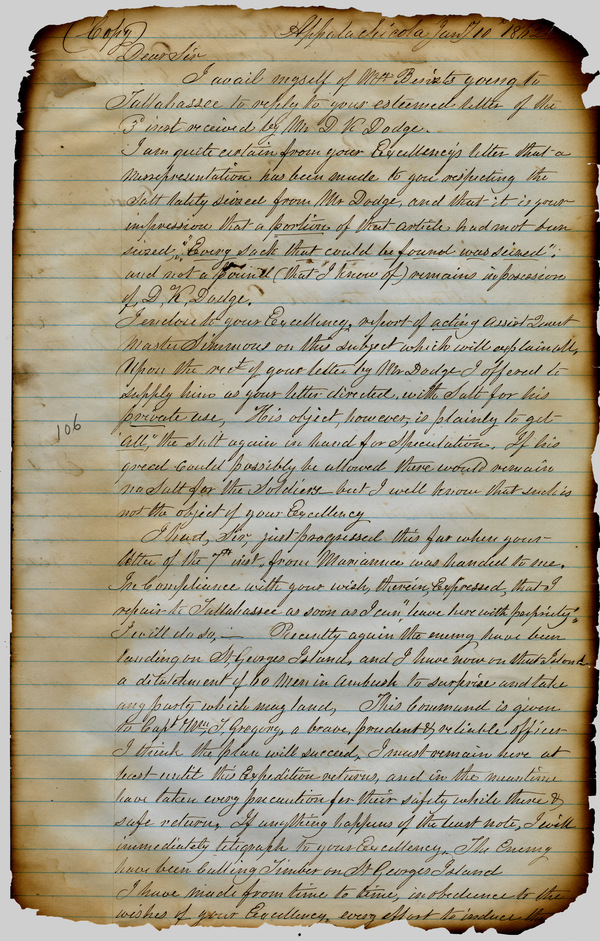 (Copy)
Appalachicola Jany 10 1862
Dear Sir
I avail myself of Mr Benizts going to
Tallahassee to reply to your esteemed letter of the
3d inst received by Mr D K Dodge.
I am quite certain from your Excellency's letter that a
misrepresentation has been made to you respecting the
Salt lately siezed from Mr Dodge, and that it is your
impression that a portion of that article had not been
siezed, "Every sack that could be found was siezed";
and not a pound (that I know of) remains in possession
of D. K. Dodge.
I enclose to your Excellency, report of acting assist Quart
Master Simmons on this subject which will explain all,
Upon the rect of your letter by Mr Dodge I offered to
supply him as your letter directed, with Salt for his
private use, His object, however, is plainly to get
all, the salt again in hand for Speculation. If his
greed could possibly be allowed there would remain
no Salt for the Soldiers but I well know that such is
not the object of your Excellency
I had, Sir, just progressed this far when your
letter of the 7th inst. from Marianna was handed to me.
In Compliance with your wish, therein, Expressed, that I
repair to Tallahassee as soon as I can "leave here with propriety",
I will do so, — Recently again the enemy have been
landing on St Georges Island, and I have now on that Island
a detatchment of 60 Men in ambush to surprise and take
any party which may land, This Command is given
to Capt Wm T. Gregory, a brave, prudent & reliable officer
I think the plan will succeed, I must remain here at
least until this Expedition returns, and in the meantime
have taken every precaution for their safety while there &
safe return. If anything happens of the least note, I will
immediately telegraph to your Excellency. The Enemy
have been Cutting Timber on St Georges Island
I have made from time to time, in obedience to the
wishes of your Excellency, every effort to induce the
106